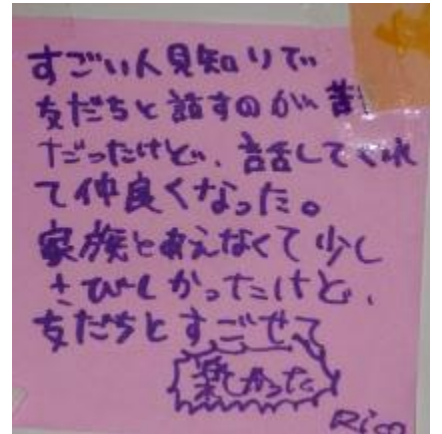 すごい人見知りで
友だちと話すのが苦
だったけど、話してくれ
て仲良くなった。
家族と会えなくて少し
さびしかったけど、
友だちとすごせて
楽しかった
Rico